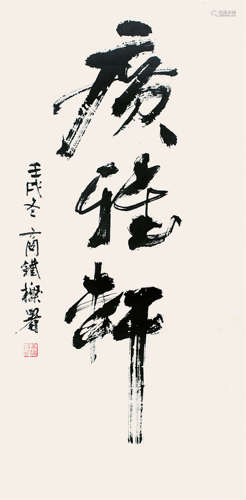 廣雅軒
壬戌冬商鐵樑署